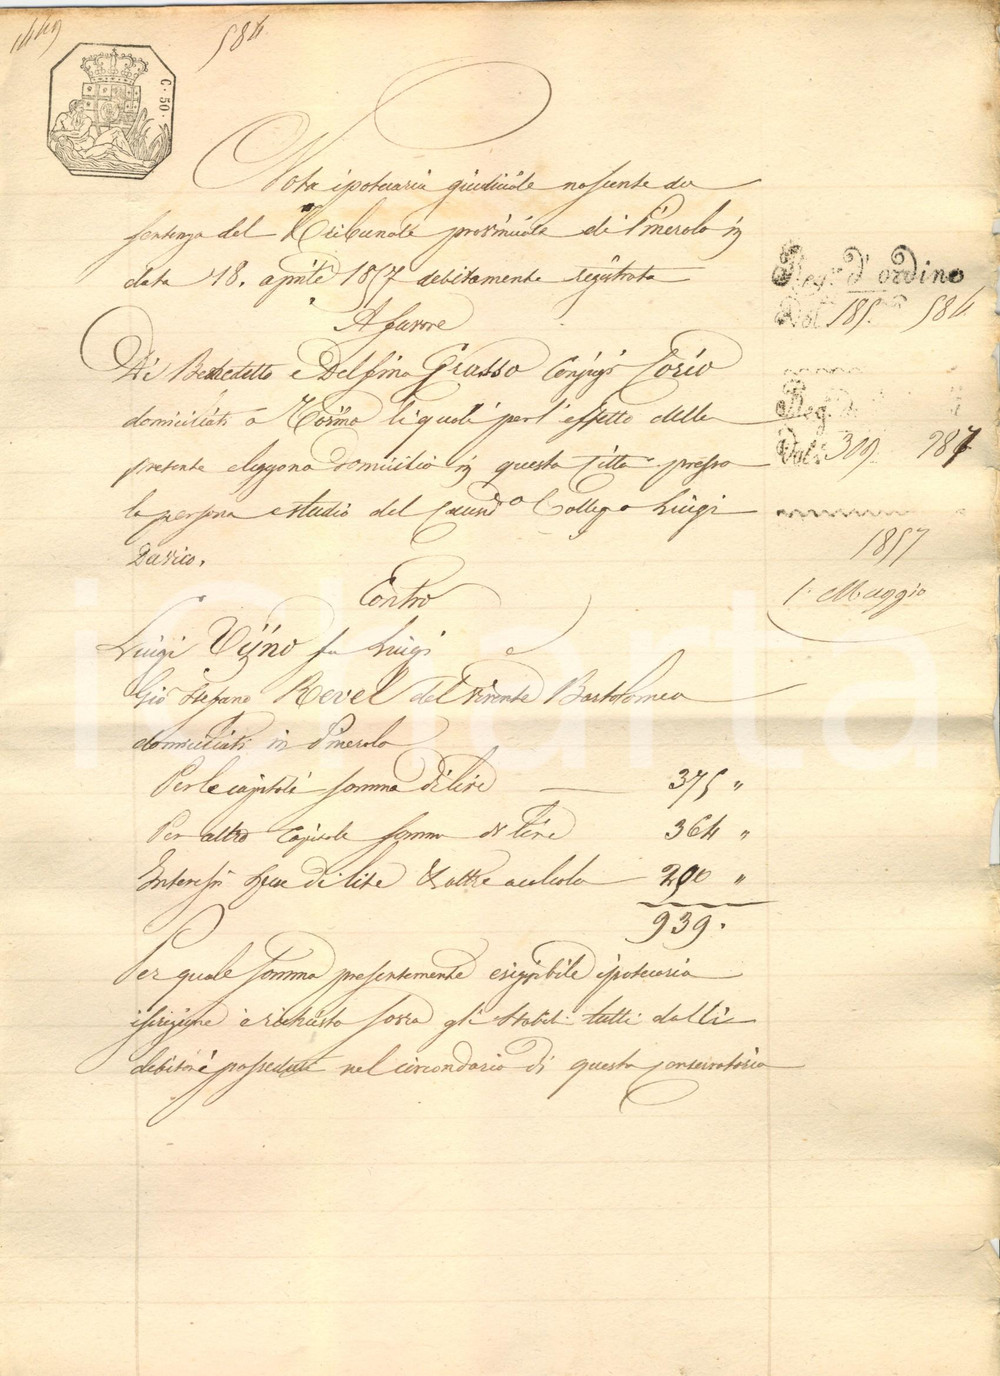 584
C. 50.
Nota ipotecaria giudiciale nascente da
sentenza del Tribunale provinciale di Pinerolo in
data 18. aprile 1857 debitamente registrata
A favore
Di Benedetto e Delfina Grasso Conjugi Corio
domiciliati a Torino li quali per l'effetto della
presente eleggono domicilio in questa Città presso
la persona e studio del Causid.o Colleg.o Luigi
Darico.
Contro
Luigi Vijno fu Luigi e
Gio Stefano Revel del vivente Bartolomeo
domiciliati in Pinerolo
Per le capitale somma di lire 375 "
Per altro capitale somma di lire 364 "
Interessi spese di lite 200 "
939.
Per quale somma presentemente esiggibile ipotecaria
iscrizione è richiesta sovra gli stabili tutti dalli
debitori posseduti nel circondario di questa conservatoria
Reg.o d'ordine
Vol. 185. 584
Reg.
Vol. 309. 287
1857
1. Maggio